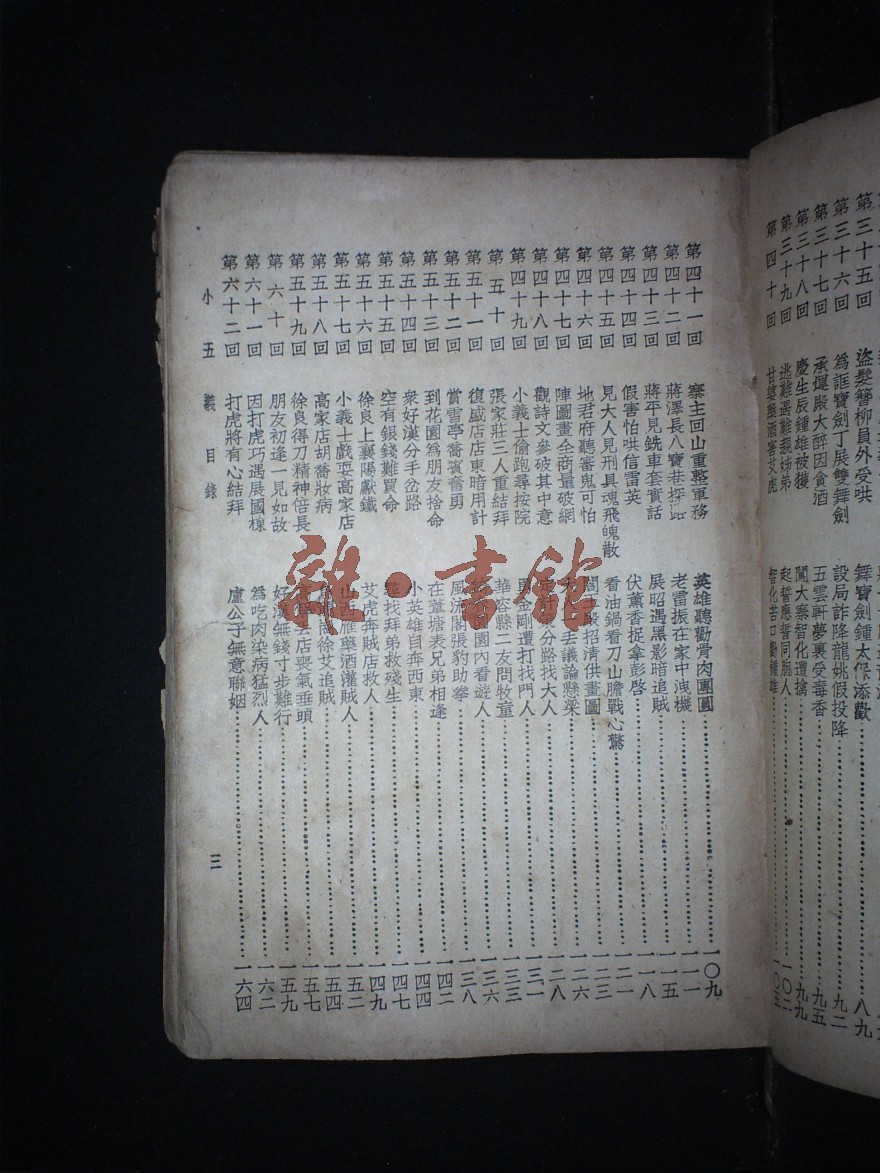 第三十五回 盜髮簪柳員外受哄 舞寶劍鍾太保添歡 八九
第三十六回 爲誆寶劍丁展雙舞劍 設局詐降龍姚假投降 九二
第三十七回 承運殿大醉因貪酒 五雲軒夢裏受毒香 九五
第三十八回 慶生辰鍾雄被獲 闖大寨智化遭擒 九九
第三十九回 逃難遇難親姊弟 起誓應誓同胞人 一〇二
第四十回 甘婆藥酒害艾虎 智化苦口勸鍾雄 一〇五
第四十一回 寨主回山重整軍務 英雄聽勸骨肉團圓……一〇九
第四十二回 蔣澤長八寶巷探路 老雷振在家中洩機……一一一
第四十三回 蔣平見銑車套實話 展昭遇黑影暗追賊……一一五
第四十四回 假害怕哄信雷英 伏薰香捉拿彭啓……一一八
第四十五回 見大人見刑具魂飛魄散 看油鍋看刀山膽戰心驚……一二一
第四十六回 地君府聽審鬼可怕 閻王殿招清供畫圖……一二三
第四十七回 陣圖畫全商量破網 去議論懸梁……一二六
第四十八回 觀詩文參破其中意 分路找大人……一二八
第四十九回 小義士偷跑尋按院 金剛遭打找門人……一三一
第五十回 張家莊三人重結拜 華容縣二友問牧童……一三三
第五十一回 復盛店店東暗用計 園內看遊人……一三六
第五十二回 賞雪亭喬賓奮勇 風流閣張豹助拳……一三八
第五十三回 到花園爲朋友捨命 在葦塘表兄弟相逢……一四二
第五十四回 衆好漢分手岔路 小英雄自奔西東……一四四
第五十五回 空有銀錢難買命 尋找拜弟救殘生……一四七
第五十六回 徐良上襄陽獻鐵 艾虎奔賊店救人……一四九
第五十七回 小義士戲耍高家店 山西雁藥酒灌賊人……一五二
第五十八回 高家店胡喬妝病 徐艾追賊……一五四
第五十九回 徐良得刀精神倍長 店喪氣垂頭……一五七
第六十回 朋友初逢一見如故 好漢無錢寸步難行……一五九
第六十一回 因打虎巧遇展國棟 爲吃肉染病猛烈人……一六二
第六十二回 打虎將有心結拜 盧公子無意聯姻……一六四
小五義 目錄 三
雜·書館